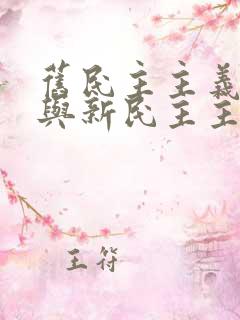 舊民主主義
與新民主主
王符